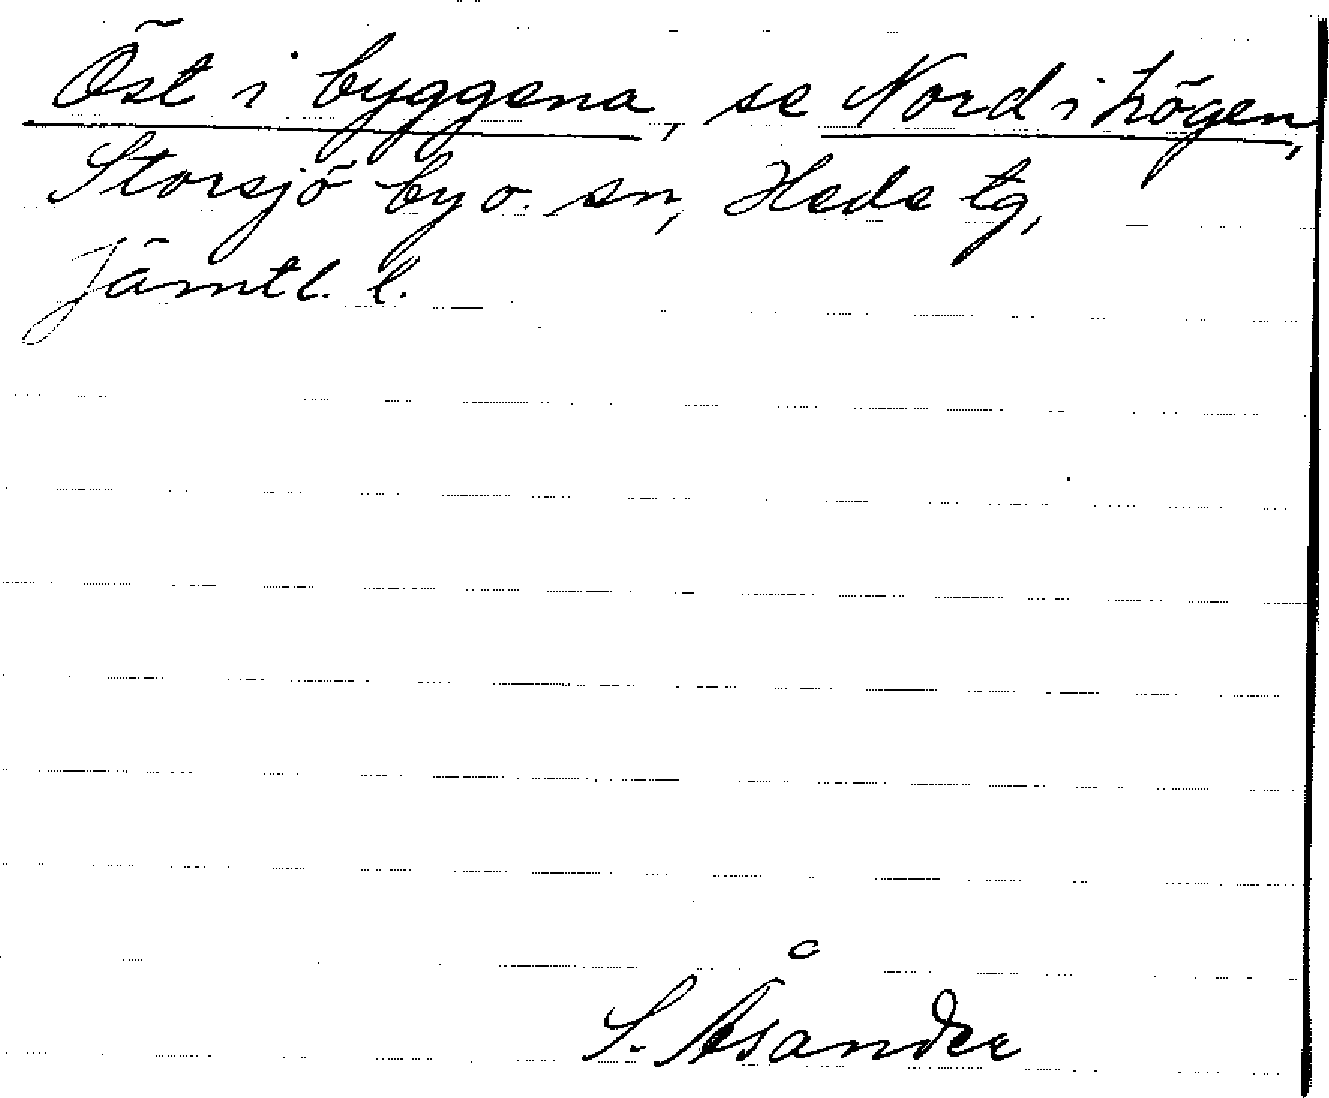 Öst i byggena, se Nord i högen,
Storsjö by o. sn, Hede tg,
Jämtl. l.
S. Åsander